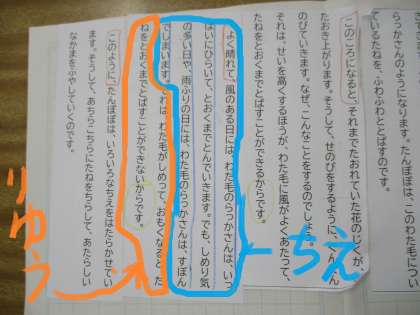 らっかさんのようになります。たんぽぽは、このわた毛につい
ているたねを、ふわふわととばすのです。
このころになると、それまでたおれていた花のじくが、ま
たおき上がります。そうして、せのびをするように、ぐんぐん
のびていきます。なぜ、こんなことをするのでしょう。
それは、せいを高くするほうが、わた毛に風がよくあたって、
たねをとおくまでとばすことができるからです。
よく晴れて、風のある日には、わた毛のらっかさんは、いっ
ぱいにひらいて、とおくまでとんでいきます。でも、しめり気
の多い日や、雨ふりの日には、わた毛のらっかさんは、すぼん
でしまいます。それは、わた毛がしめって、おもくなると、た
ねをとおくまでとばすことができないからです。
このように、たんぽぽは、いろいろなちえをはたらかせてい
ます。そうして、あちらこちらにたねをちらして、あたらしい
なかまをふやしていくのです。
ちえ
りゆう